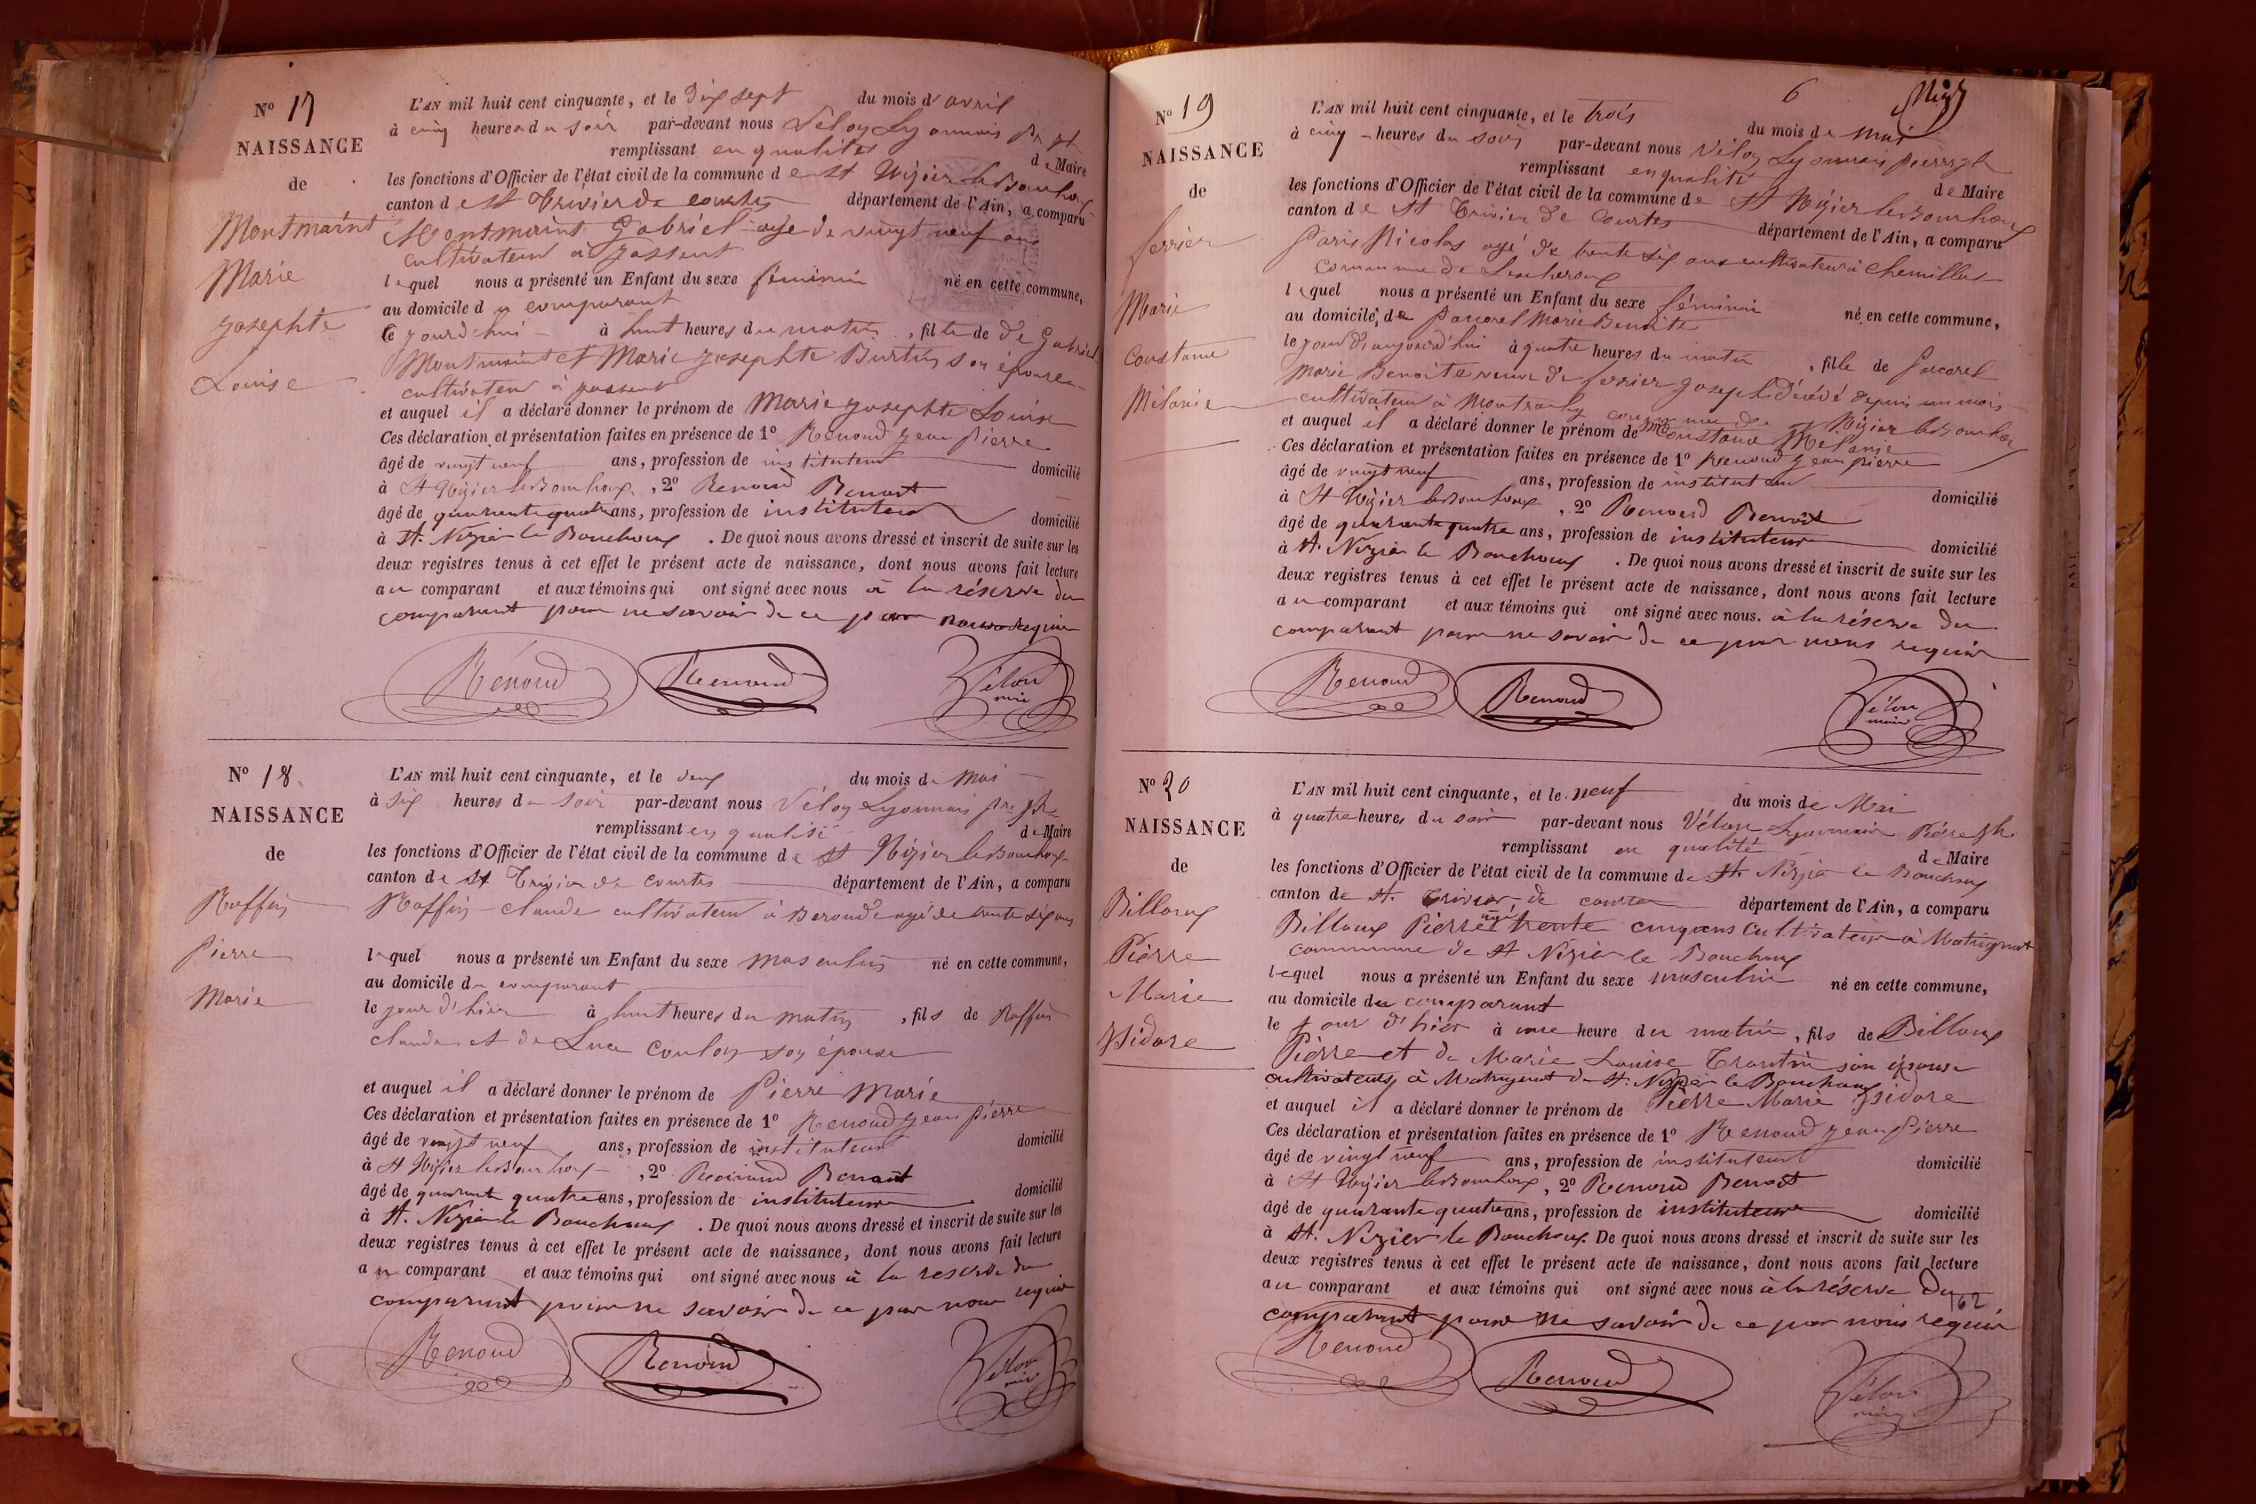 N° 17
NAISSANCE
de
Montmaint
Marie
Josephte
Louise
L'AN mil huit cent cinquante, et le dix sept du mois d'avril
à cinq heures du soir par-devant nous Vélon Lyonnais
remplissant en qualité de Maire
les fonctions d'Officier de l'état civil de la commune de St Nizier le Bouchoux
canton de St Trivier de courtes département de l'Ain, a comparu
Montmaint Gabriel agé de vingt neuf ans
cultivateur à
lequel nous a présenté un Enfant du sexe féminin né en cette commune,
au domicile du comparant
ce jourd'hui à huit heures du matin, fille de de Gabriel
Montmaint et Marie Josephte Burtin son épouse
cultivateur à
et auquel il a déclaré donner le prénom de Marie Josephte Louise
Ces déclaration et présentation faites en présence de 1° Renoud Jean pierre
âgé de vingt neuf ans, profession de instituteur domicilié
à St Nizier le Bouchoux, 2° Renoud Benoit
âgé de quarante quatre ans, profession de instituteur domicilié
à St. Nizier le Bouchoux. De quoi nous avons dressé et inscrit de suite sur les
deux registres tenus à cet effet le présent acte de naissance, dont nous avons fait lecture
au comparant et aux témoins qui ont signé avec nous à la réserve du
comparant pour ne savoir de ce par nous requis
Renoud Renoud Vélon maire
N° 18
NAISSANCE
de
Raffin
Pierre
Marie
L'AN mil huit cent cinquante, et le deux du mois de Mai
à six heures du soir par-devant nous Vélon Lyonnais
remplissant en qualité de Maire
les fonctions d'Officier de l'état civil de la commune de St Nizier le Bouchoux
canton de St Trivier de courtes département de l'Ain, a comparu
Raffin claude cultivateur à agé de trente six ans
lequel nous a présenté un Enfant du sexe masculin né en cette commune,
au domicile du comparant
le jour d'hier à huit heures du matin, fils de Raffin
claude et de Luce Coulon son épouse
et auquel il a déclaré donner le prénom de Pierre Marie
Ces déclaration et présentation faites en présence de 1° Renoud Jean pierre
âgé de vingt neuf ans, profession de instituteur domicilié
à St Nizier le Bouchoux, 2° Renoud Benoit
âgé de quarante quatre ans, profession de instituteur domicilié
à St. Nizier le Bouchoux. De quoi nous avons dressé et inscrit de suite sur les
deux registres tenus à cet effet le présent acte de naissance, dont nous avons fait lecture
au comparant et aux témoins qui ont signé avec nous à la reserve du
comparant pour ne savoir de ce par nous requis
Renoud Renoud Vélon maire
6
N° 19
NAISSANCE
de
ferrier
Marie
Constance
Mélanie
L'AN mil huit cent cinquante, et le trois du mois de mai
à cinq heures du soir par-devant nous Vélon Lyonnais pierre
remplissant en qualité de Maire
les fonctions d'Officier de l'état civil de la commune de St Nizier le Bouchoux
canton de St Trivier de Courtes département de l'Ain, a comparu
Paris Nicolas agé de trente six ans cultivateur à
commune de
lequel nous a présenté un Enfant du sexe féminin né en cette commune,
au domicile, de Pacorel Marie Benoite
le jour d'aujourd'hui à quatre heures du matin, fille de Pacorel
Marie Benoite veuve de ferrier Joseph décédé depuis un mois
cultivateur à commune de Nizier le Bouchoux
et auquel il a déclaré donner le prénom de Constance Mélanie
Ces déclaration et présentation faites en présence de 1° Renoud Jean pierre
âgé de vingt neuf ans, profession de instituteur domicilié
à St Nizier le Bouchoux, 2° Renoud Benoit
âgé de quarante quatre ans, profession de instituteur domicilié
à St. Nizier le Bouchoux. De quoi nous avons dressé et inscrit de suite sur les
deux registres tenus à cet effet le présent acte de naissance, dont nous avons fait lecture
au comparant et aux témoins qui ont signé avec nous. à la réserve du
comparant pour ne savoir de ce par nous requis
Renoud Renoud Vélon maire
N° 20
NAISSANCE
de
Billoux
Pierre
Marie
Isidore
L'AN mil huit cent cinquante, et le neuf du mois de Mai
à quatre heures du soir par-devant nous Vélon Lyonnais Pierre
remplissant en qualité de Maire
les fonctions d'Officier de l'état civil de la commune de St Nizier le Bouchoux
canton de St. Trivier de courtes département de l'Ain, a comparu
Billoux Pierre agé trente cinq ans Cultivateur à
commune de St Nizier le Bouchoux
lequel nous a présenté un Enfant du sexe masculin né en cette commune,
au domicile du comparant
le jour d'hier à une heure du matin, fils de Billoux
Pierre et de Marie Louise son épouse
cultivateurs à de St. Nizier le Bouchoux
et auquel il a déclaré donner le prénom de Pierre Marie Isidore
Ces déclaration et présentation faites en présence de 1° Renoud Jean Pierre
âgé de vingt neuf ans, profession de instituteur domicilié
à St Nizier le Bouchoux, 2° Renoud Benoit
âgé de quarante quatre ans, profession de instituteur domicilié
à St. Nizier le Bouchoux. De quoi nous avons dressé et inscrit de suite sur les
deux registres tenus à cet effet le présent acte de naissance, dont nous avons fait lecture
au comparant et aux témoins qui ont signé avec nous à la réserve du
162
comparant pour ne savoir de ce par nous requis
Renoud Renoud Vélon maire